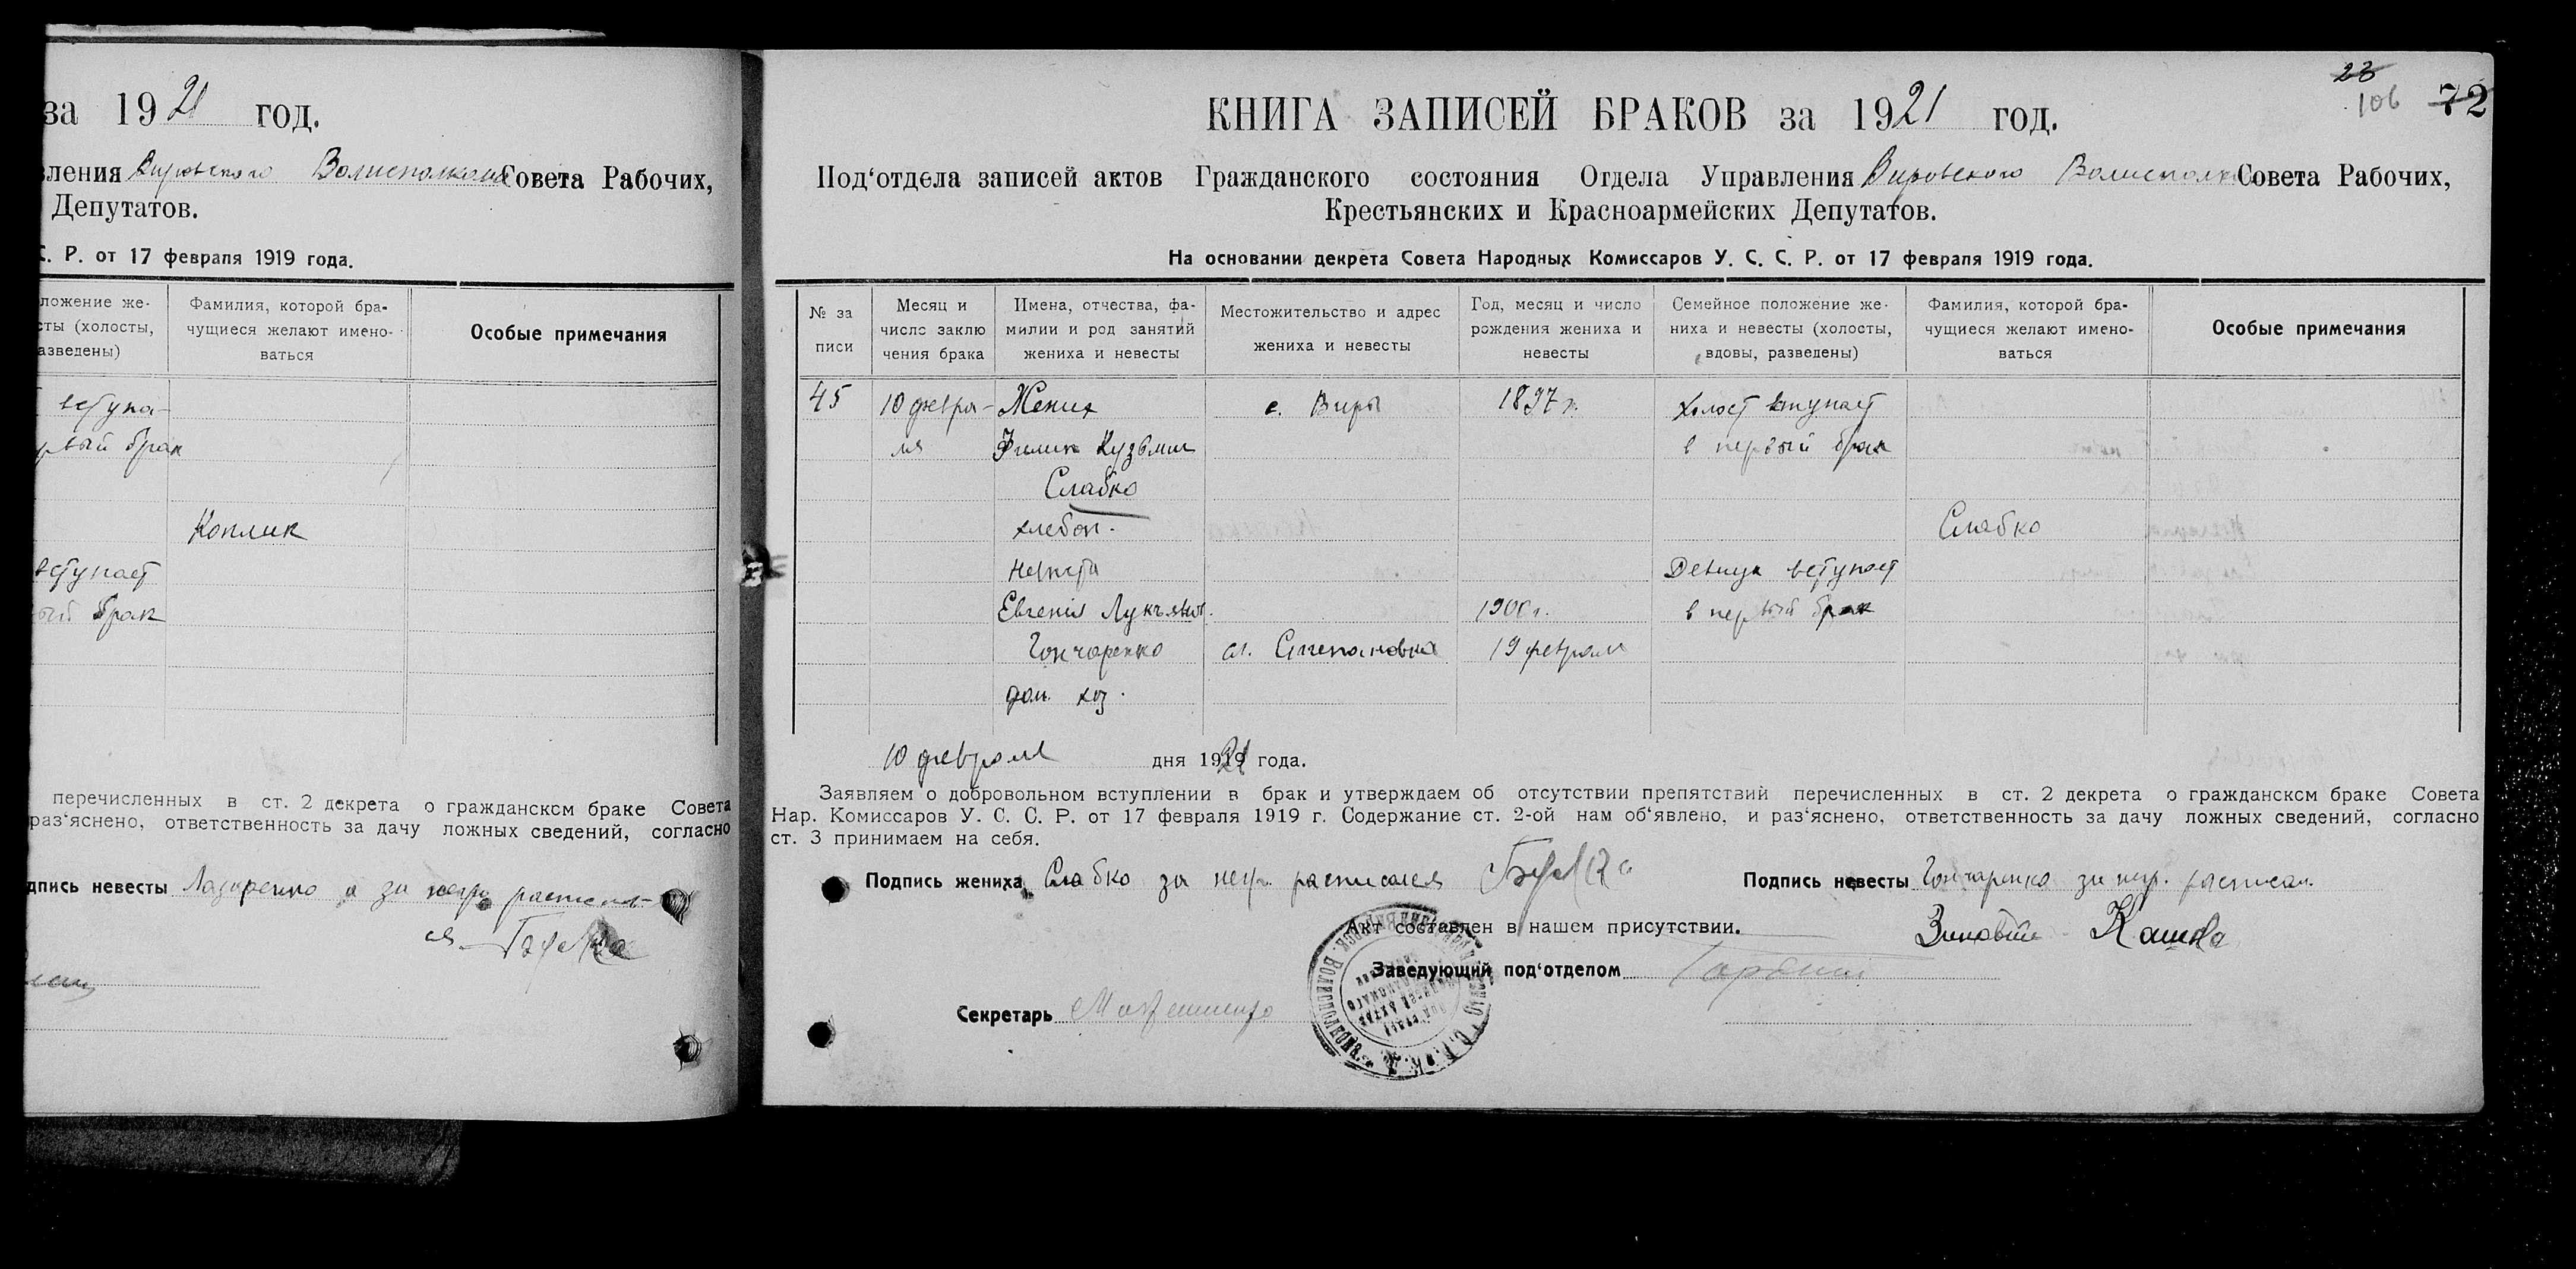 за 1921 год.
вления Вировского Волисполкома Совета Рабочих,
Депутатов.
С. Р. от 17 февраля 1919 года.
ложение же-
сты (холосты,
азведены)
Фамилия, которой бра-
чущиеся желают имено-
ваться
Особые примечания
вступа-
рвый брак
Коплик
вступает
ый брак
перечисленных в ст. 2 декрета о гражданском браке Совета
раз‘яснено, ответственность за дачу ложных сведений, согласно
дпись невесты Лазаренко а за негр. расписал-
ся
23
106
72
КНИГА ЗАПИСЕЙ БРАКОВ за 1921 год.
Под‘отдела записей актов Гражданского состояния Отдела Управления Вировского Волисполк Совета Рабочих,
Крестьянских и Красноармейских Депутатов.
На основании декрета Совета Народных Комиссаров У. С. С. Р. от 17 февраля 1919 года.
№ за
писи
Месяц и
число заклю
чения брака
Имена, отчества, фа-
милии и род занятий
жениха и невесты
Местожительство и адрес
жениха и невесты
Год, месяц и число
рождения жениха и
невесты
Семейное положение же-
ниха и невесты (холосты,
вдовы, разведены)
Фамилия, которой бра-
чущиеся желают имено-
ваться
Особые примечания
45 10 февра- Жених с. Виры 1897 г. холост вступает
ля Филип Кузьмич в первый брак
Слабко
хлебоп. Слабко
Невеста Девица вступает
Евгенія Лукъянов. 1900 г. в первый брак
Гончаренко сл. Степановка 19 февраля
дом. хоз.
10 февраля дня 1921 года.
Заявляем о добровольном вступлении в брак и утверждаем об отсутствии препятствий перечисленных в ст. 2 декрета о гражданском браке Совета
Нар. Комиссаров У. С. С. Р. от 17 февраля 1919 г. Содержание ст. 2-ой нам об‘явлено, и раз‘яснено, ответственность за дачу ложных сведений, согласно
ст. 3 принимаем на себя.
Подпись жениха Слабко за негр. расписался
Подпись невесты Гончаренко за негр. расписал.
Зиновий Кашка
Акт составлен в нашем присутствии.
Заведующий под‘отделом
Секретарь